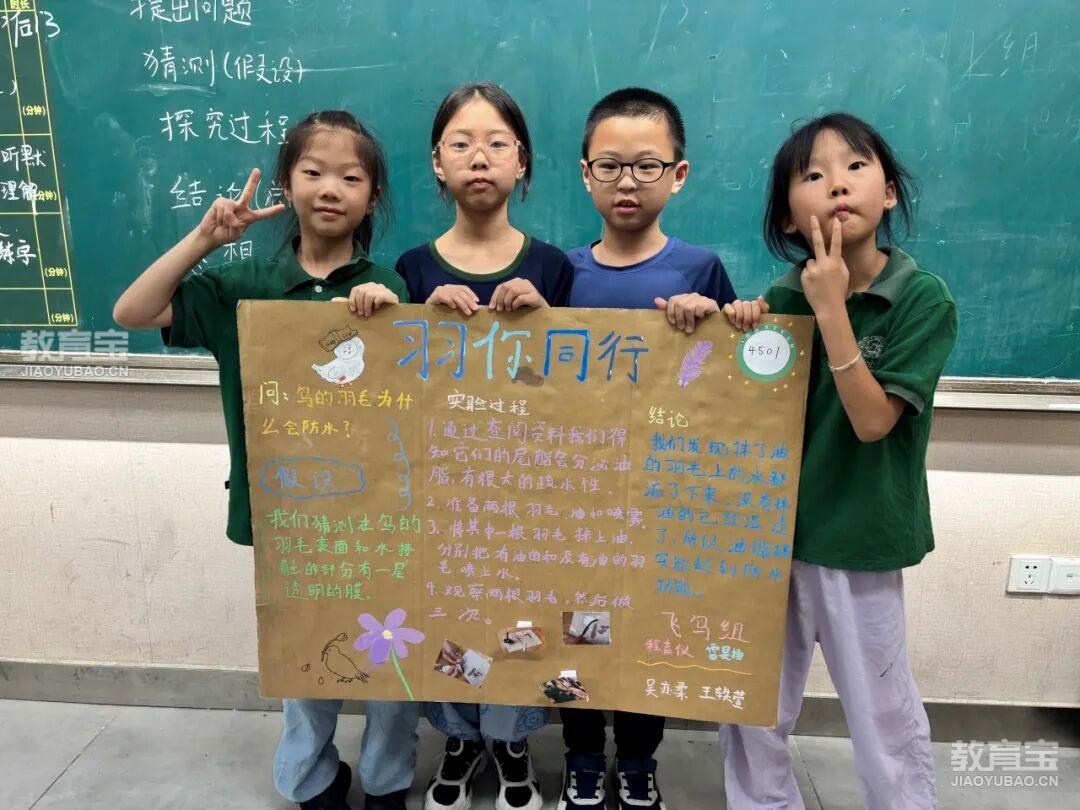 提出问题
猜测(假设)
探究过程
结论
相
(分钟)
听默
理解
(分钟)
练字
(分钟)
(分钟)
教育宝
JIAOYUBAO.CN
羽你同行
4501
问：鸟的羽毛为什
么会防水？
假设
我们猜测在鸟的
羽毛表面和水接
触的部分有一层
透明的膜。
实验过程
1.通过查阅资料我们得
知它们的尾脂会分泌油
脂，有很大的疏水性。
2.准备两根羽毛，油和喷雾。
3.将其中一根羽毛抹上油，
分别把有油的和没有油的羽
毛喷上水。
4.观察两根羽毛，然后做
三次。
结论
我们发现抹了油
的羽毛上的水都
滴了下来，没有抹
油的已经湿透
了，所以油脂确
实能起到防水
功能。
飞鸟组
吴亦柔 王轶萱
教育宝
JIAOYUBAO.CN